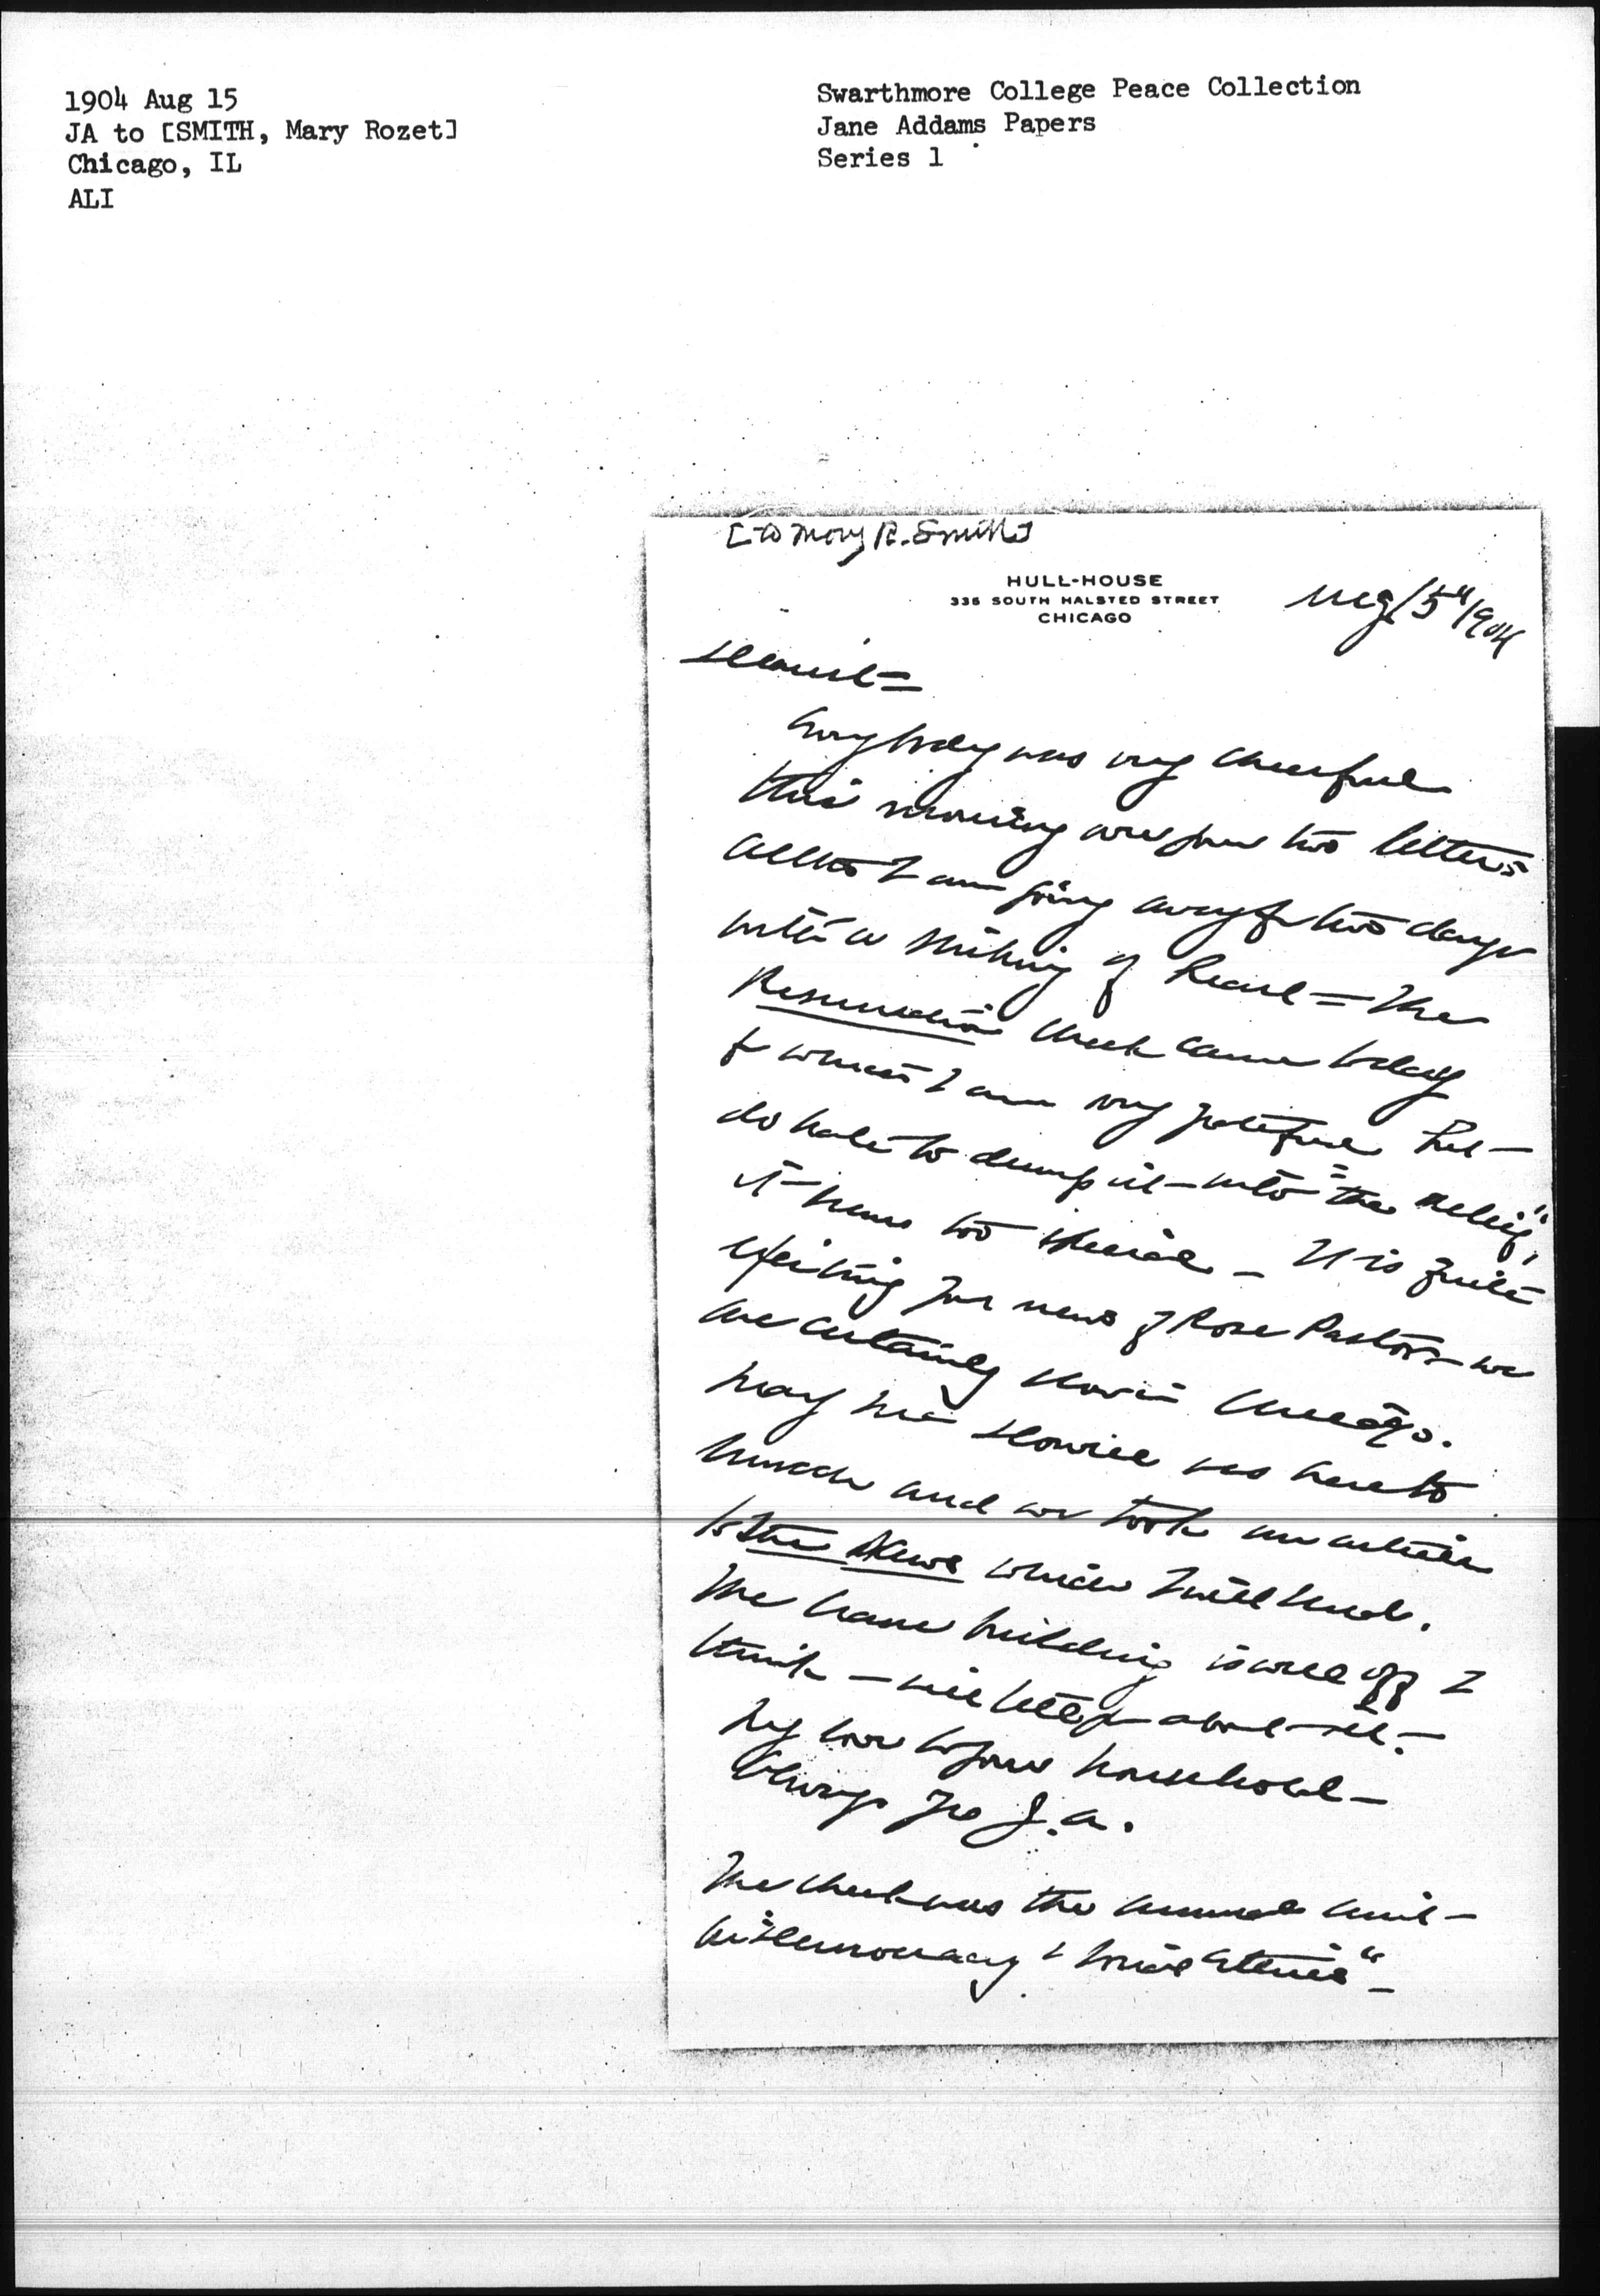 1904 Aug 15
JA to [SMITH, Mary Rozet]
Chicago, IL
ALI
Swarthmore College Peace Collection
Jane Addams Papers
Series 1
[to Mary R. Smith]
HULL-HOUSE
335 SOUTH HALSTED STREET
CHICAGO
Aug 15" 1904
Dearest =
Everybody was very cheerful
this morning over your two letters
altho I am going away for two days
with a sinking of heart = The
check came today
for which I am very grateful but
do hate to dump it into "the relief",
it has too — It is quite
exciting your news of Rose Pastor — we
are certainly slow in Chicago.
May was here to
lunch and we took an
to the News which I will send.
The building is well off I
think — will letter about it —
My love to your household —
Always Yrs J.A.
The check was the annual
for "Democracy & Social Ethics" —